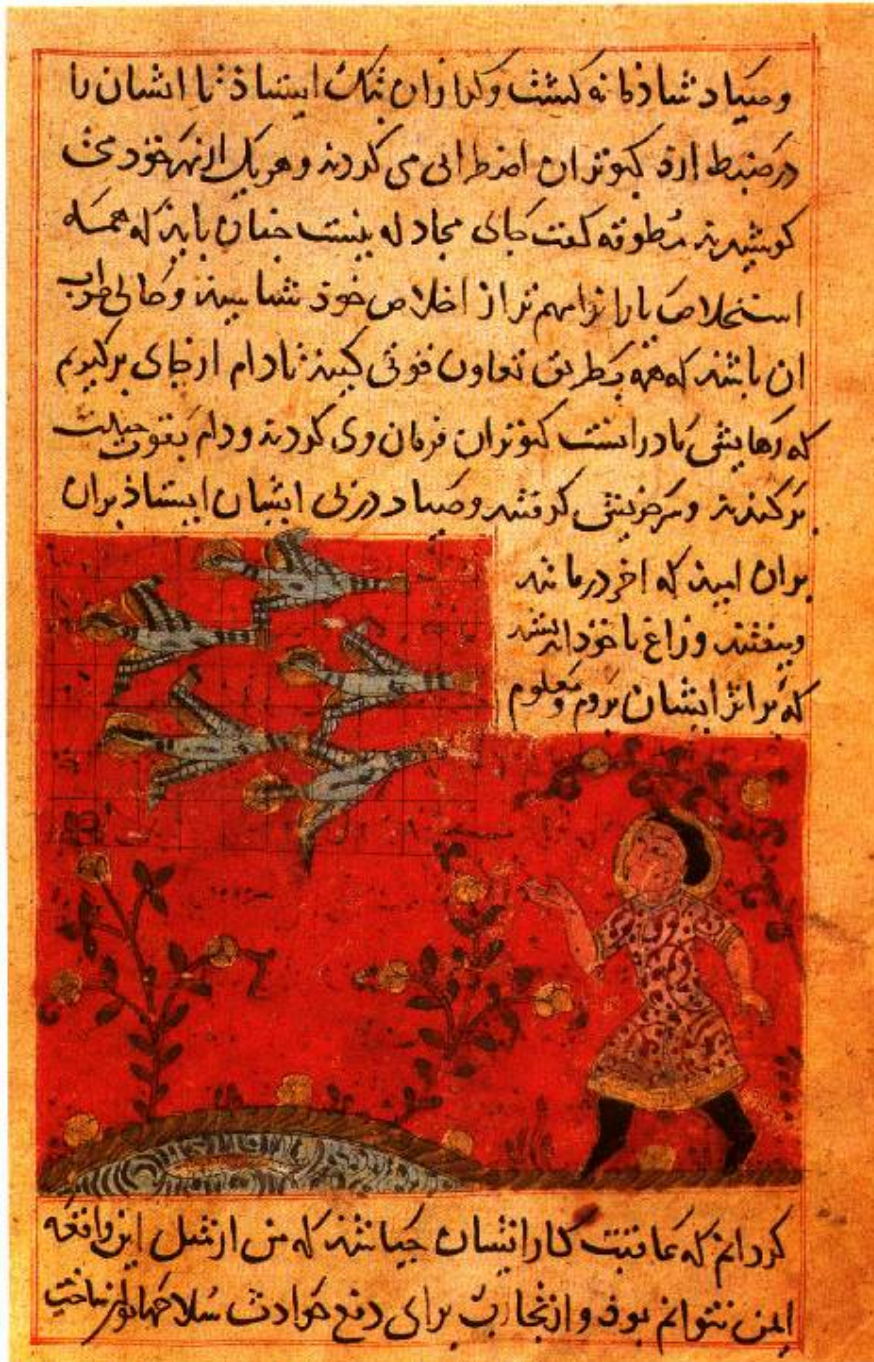 و صیاد شاذمانه کشت و کرازان بتک ایستاذ تا ایشان را
در ضبط ارذ کبوتران اضطرابی می کردند و هر یک از بهر خود می
کوشیدند مطوقه کفت جای مجادله نیست چنان بایذ که همه
استخلاص یارانرا مهم تر از اخلاص خوذ شناسند و حالی صواب
ان باشد که همه بطریق تعاون قوتی کنید تا دام از جای برکیریم
که رهایش ما دران است کبوتران فرمان وی کردند و دام بقوت
برکندند و سر خویش کرفتند و صیاد در پی ایشان ایستاذ بران
بران امید که اخر درمانند
و بیفتند و زاغ با خوذ اندیشید
که بر اثر ایشان بروم و معلوم
کردانم که عاقبت کار ایشان چه باشد که من از مثل این واقعه
ایمن نتوانم بوذ و از تجارب برای دفع حوادث سلاحها توان ساخت